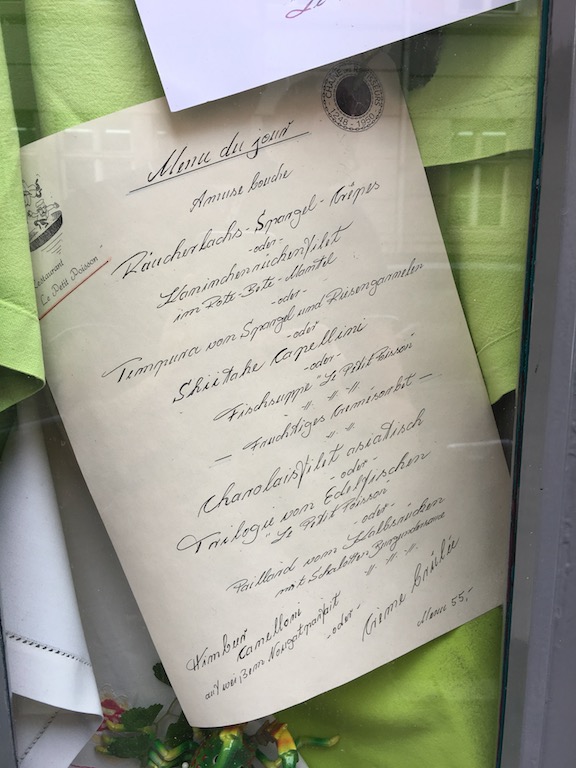 Menu du jour
Amuse bouche
Räucherlachs-Spargel-Crêpes
-oder-
Kaninchenrückenfilet
im Rote-Bete-Mantel
-oder-
Tempura von Spargel und Riesengarnelen
-oder-
Shiitake Capellini
-oder-
Fischsuppe "Le Petit Poisson"
- Fruchtiges Cremesorbet -
Charolaisfilet asiatisch
-oder-
Trilogie von Edelfischen
"Le Petit Poisson"
-oder-
Paillard vom Kalbsrücken
mit Schalotten Burgundersauce
Canelloni
auf weißem Nougatparfait
-oder-
Crème Brûlée
Menu 55,-
Restaurant
"Le Petit Poisson"
1248 - 1950